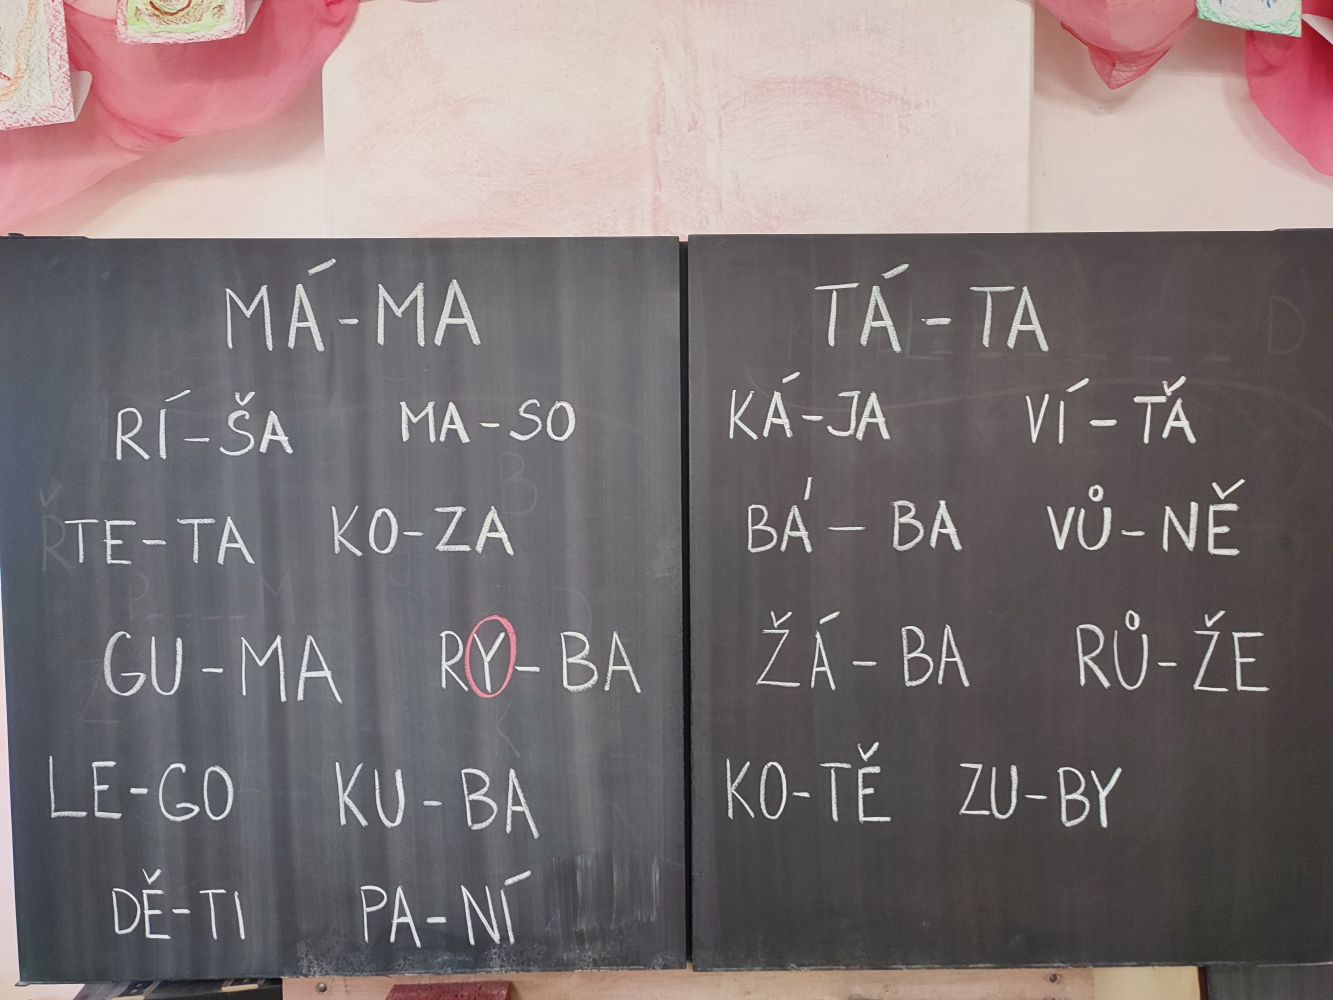 MÁ-MA
RÍ-ŠA MA-SO
TE-TA KO-ZA
GU-MA RY-BA
LE-GO KU-BA
DĚ-TI PA-NÍ
TÁ-TA
KÁ-JA VÍ-ŤA
BÁ-BA VŮ-NĚ
ŽÁ-BA RŮ-ŽE
KO-TĚ ZU-BY